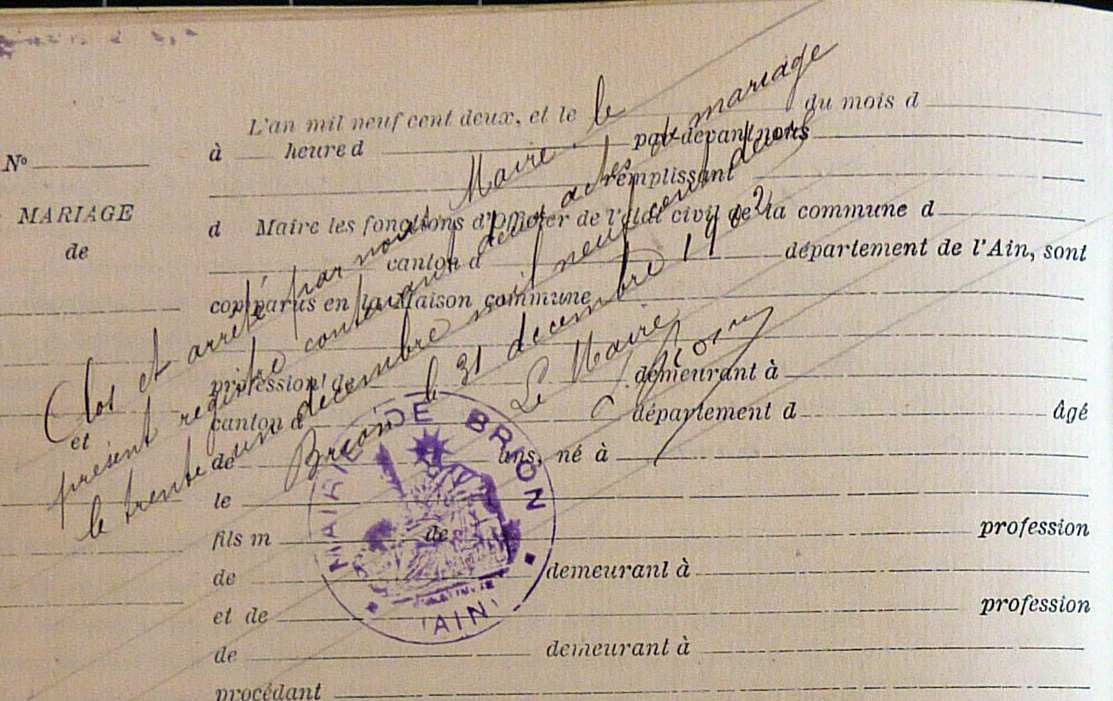 L'an mil neuf cent deux, et le du mois d
N° à heure d par devant nous
remplissant
MARIAGE
de
d Maire les fonctions d'officier de l'état civil de la commune d
canton d département de l'Ain, sont
comparus en la Maison commune
profession de demeurant à
et
canton d département d âgé
de ans, né à
le
fils m de profession
de demeurant à
et de profession
de demeurant à
procédant
Clos et arrêté par nous Maire, le
présent registre contenant deux actes de mariage
le trente un décembre mil neuf cent deux
le 31 décembre 1902
Le Maire
MAIRIE DE BRION
AIN